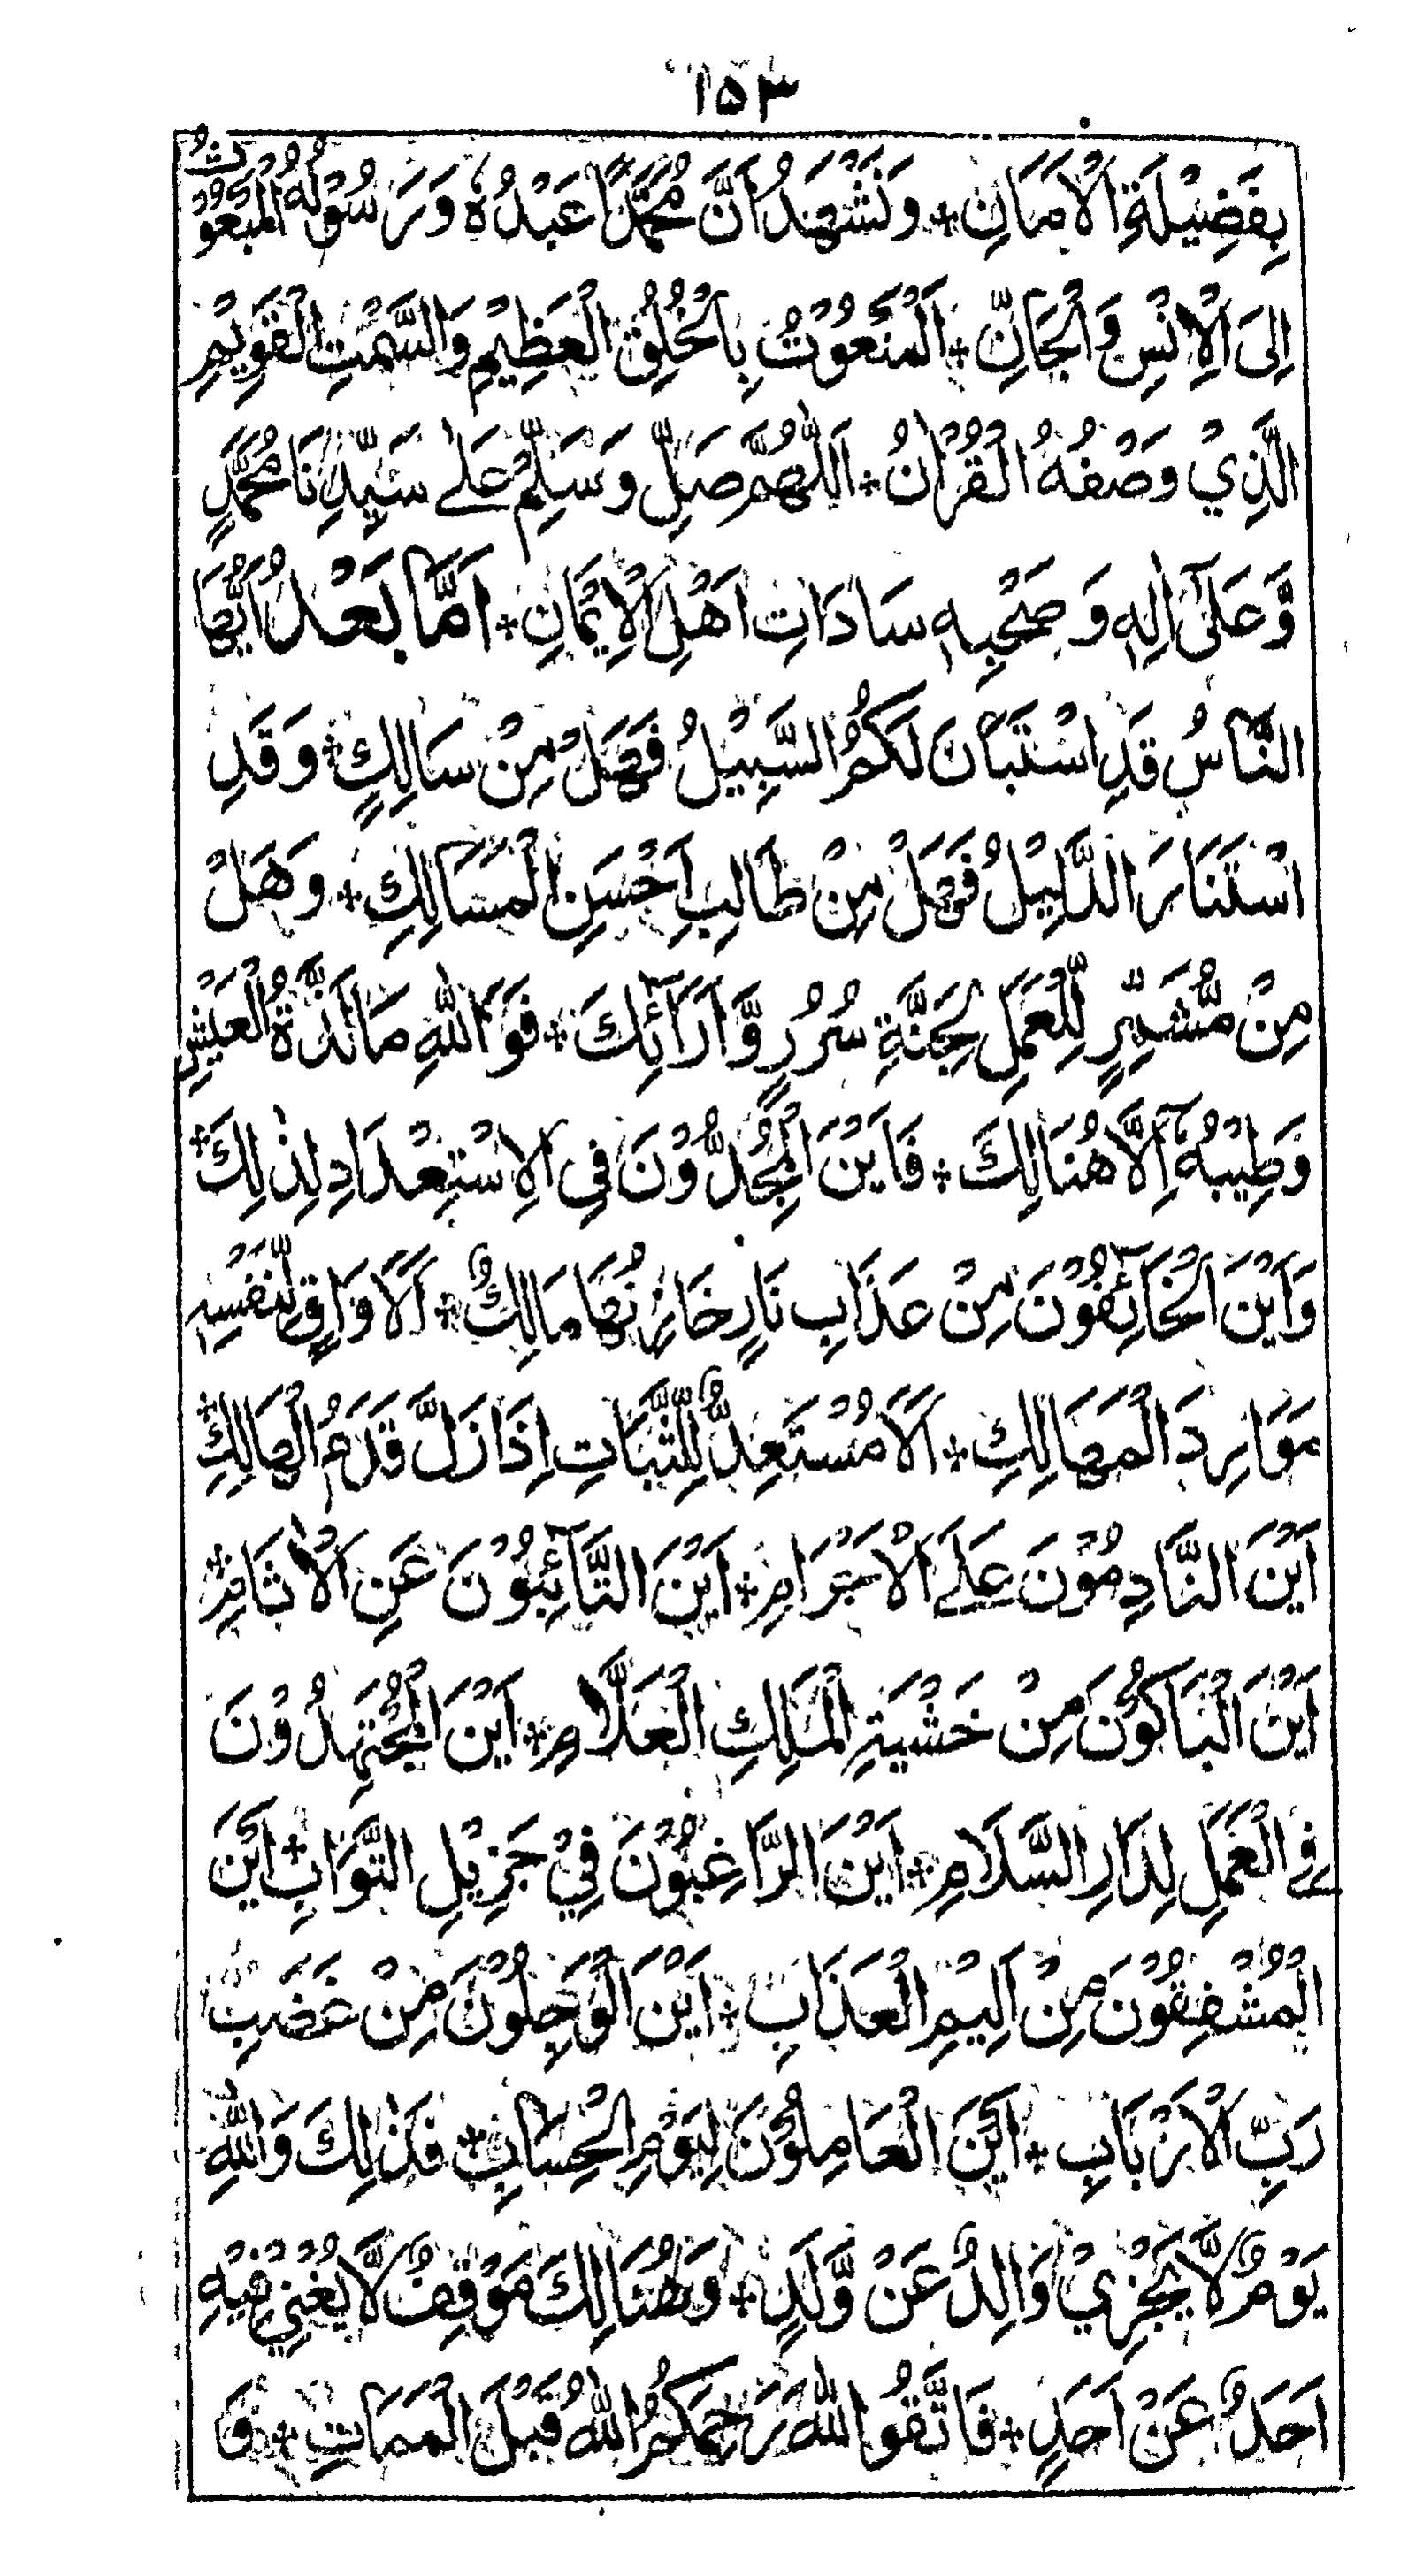 ١٥٣
بِفَضِيْلَةِ الْاَمَانِ ۞ وَنَشْهَدُ اَنَّ مُحَمَّدًا عَبْدُهٗ وَرَسُوْلُهُ الْمَبْعُوْثُ
اِلَى الْاِنْسِ وَالْجَانِّ ۞ اَلْمَنْعُوْتُ بِالْخُلُقِ الْعَظِيْمِ وَالسَّمْتِ الْقَوِيْمِ
الَّذِيْ وَصْفُهُ الْقُرْاٰنُ ۞ اَللّٰهُمَّ صَلِّ وَسَلِّمْ عَلٰے سَيِّدِنَا مُحَمَّدٍ
وَّعَلٰٓى اٰلِهٖ وَصَحْبِهٖ سَادَاتِ اَهْلِ الْاِيْمَانِ ۞ اَمَّا بَعْدُ اَيُّهَا
النَّاسُ قَدِ اسْتَبَانَ لَكُمُ السَّبِيْلُ فَهَلْ مِنْ سَالِكٍ ۞ وَقَدِ
اسْتَنَارَ الدَّلِيْلُ فَهَلْ مِنْ طَالِبِ اَحْسَنِ الْمَسَالِكِ ۞ وَهَلْ
مِنْ مُّشَمِّرٍ لِّلْعَمَلِ لِجَنَّةِ سُرُرٍ وَّاَرَآئِكَ ۞ فَوَاللّٰهِ مَا لَذَّةُ الْعَيْشِ
وَطِيْبُهٗٓ اِلَّا هُنَالِكَ ۞ فَاَيْنَ الْمُجِدُّوْنَ فِى الْاِسْتِعْدَادِ لِذٰلِكَ ۞
وَاَيْنَ الْخَآئِفُوْنَ مِنْ عَذَابِ نَارٍ خَازِنُهَا مَالِكٌ ۞ اَلَا وَاقٍ لِّنَفْسِهٖ
مَوَارِدَ الْمَهَالِكِ ۞ اَلَا مُسْتَعِدٌّ لِّلثَّبَاتِ اِذَا زَلَّ قَدَمُ الْهَالِكِ ۞
اَيْنَ النَّادِمُوْنَ عَلَے الْاَجْرَامِ ۞ اَيْنَ التَّآئِبُوْنَ عَنِ الْاٰثَامِ ۞
اَيْنَ الْبَاكُوْنَ مِنْ خَشْيَةِ الْمَلِكِ الْعَلَّامِ ۞ اَيْنَ الْمُجْتَهِدُوْنَ
فِے الْعَمَلِ لِدَارِ السَّلَامِ ۞ اَيْنَ الرَّاغِبُوْنَ فِيْ جَزِيْلِ الثَّوَابِ ۞ اَيْنَ
الْمُشْفِقُوْنَ مِنْ اَلِيْمِ الْعَذَابِ ۞ اَيْنَ الْوَجِلُوْنَ مِنْ غَضَبِ
رَبِّ الْاَرْبَابِ ۞ اَيْنَ الْعَامِلُوْنَ لِيَوْمِ الْحِسَابِ ۞ فَذٰلِكَ وَاللّٰهِ
يَوْمٌ لَّا يَجْزِيْ وَالِدٌ عَنْ وَّلَدِهٖ ۞ وَهُنَالِكَ مَوْقِفٌ لَّا يُغْنِيْ فِيْهِ
اَحَدٌ عَنْ اَحَدٍ ۞ فَاتَّقُوا اللّٰهَ رَحِمَكُمُ اللّٰهُ قَبْلَ الْمَمَاتِ ۞ وَ